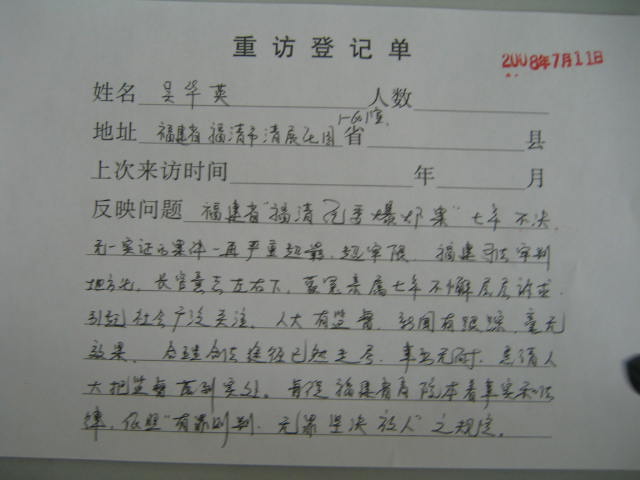 重访登记单
2008年7月11日
姓名 吴华英 人数
地址 福建省福清市清展花园 省 县
上次来访时间 年 月
反映问题 福建省"福清纪委爆炸案"七年不决，
无一实证的案件一再严重超期、超审限，福建司法审判
地方化，长官意志左右下，蒙冤亲属七年不懈层层诉求，
引起社会广泛关注，人大有监督，新闻有跟踪，毫无
效果，合理合法途径已然走尽，事出无耐，恳请人
大把监督落到实处，督促福建省高院本着事实和法
律，依照"有罪则判，无罪坚决放人"之规定。